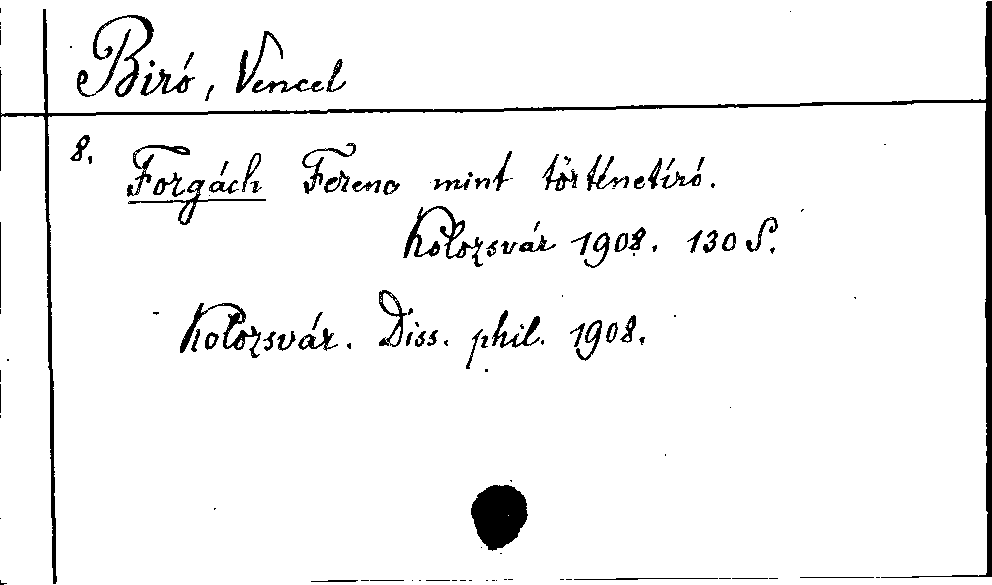 Biró, Vencel
8. Forgách Ferenc mint történetíró.
Kolozsvár 1908. 130 S.
Kolozsvár. Diss. phil. 1908.